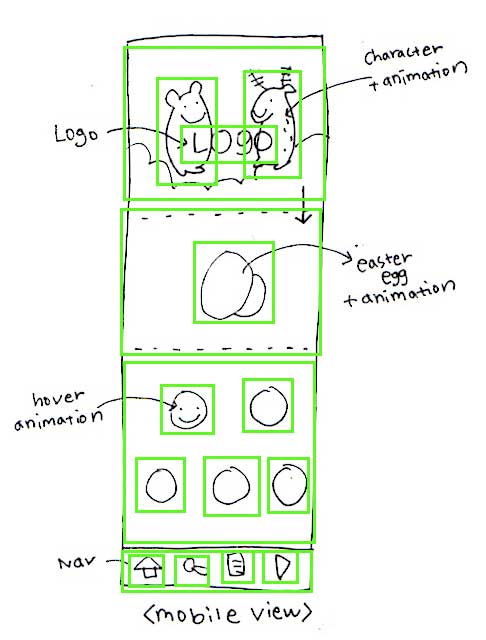 character
+ animation
Logo
LOgO
easter
egg
+ animation
hover
animation
Nav
<mobile view>